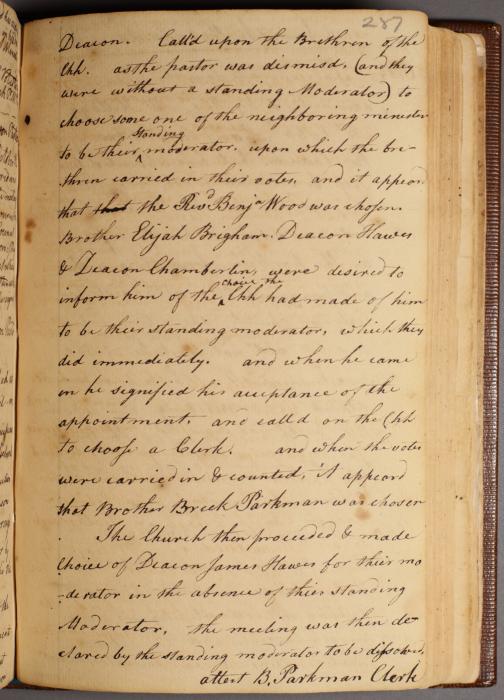 287
Deacon. Call'd upon the Brethren of the
Chh. as the pastor was dismisd, (and they
were without a standing Moderator) to
choose some one of the neighboring minister
standing
to be their ^ moderator, upon which the bre-
thren carried in their votes, and it appeard
that that the Revd Benja Wood was chosen.
Brother Elijah Brigham. Deacon Hawes
& Deacon Chamberlin, were desired to
choice the
inform him of the ^ Chh had made of him
to be their standing moderator, which they
did immediately. and when he came
in he signified his acceptance of the
appointment, and calld on the Chh
to choose a Clerk. and when the votes
were carried in & counted, it appeard
that Brother Breck Parkman was chosen
. The Church then proceeded & made
Choice of Deacon James Hawes for their mo
-derator in the absence of their standing
Moderator, the meeting was then de-
clared by the standing moderator to be dissolved.
attest B. Parkman Clerk